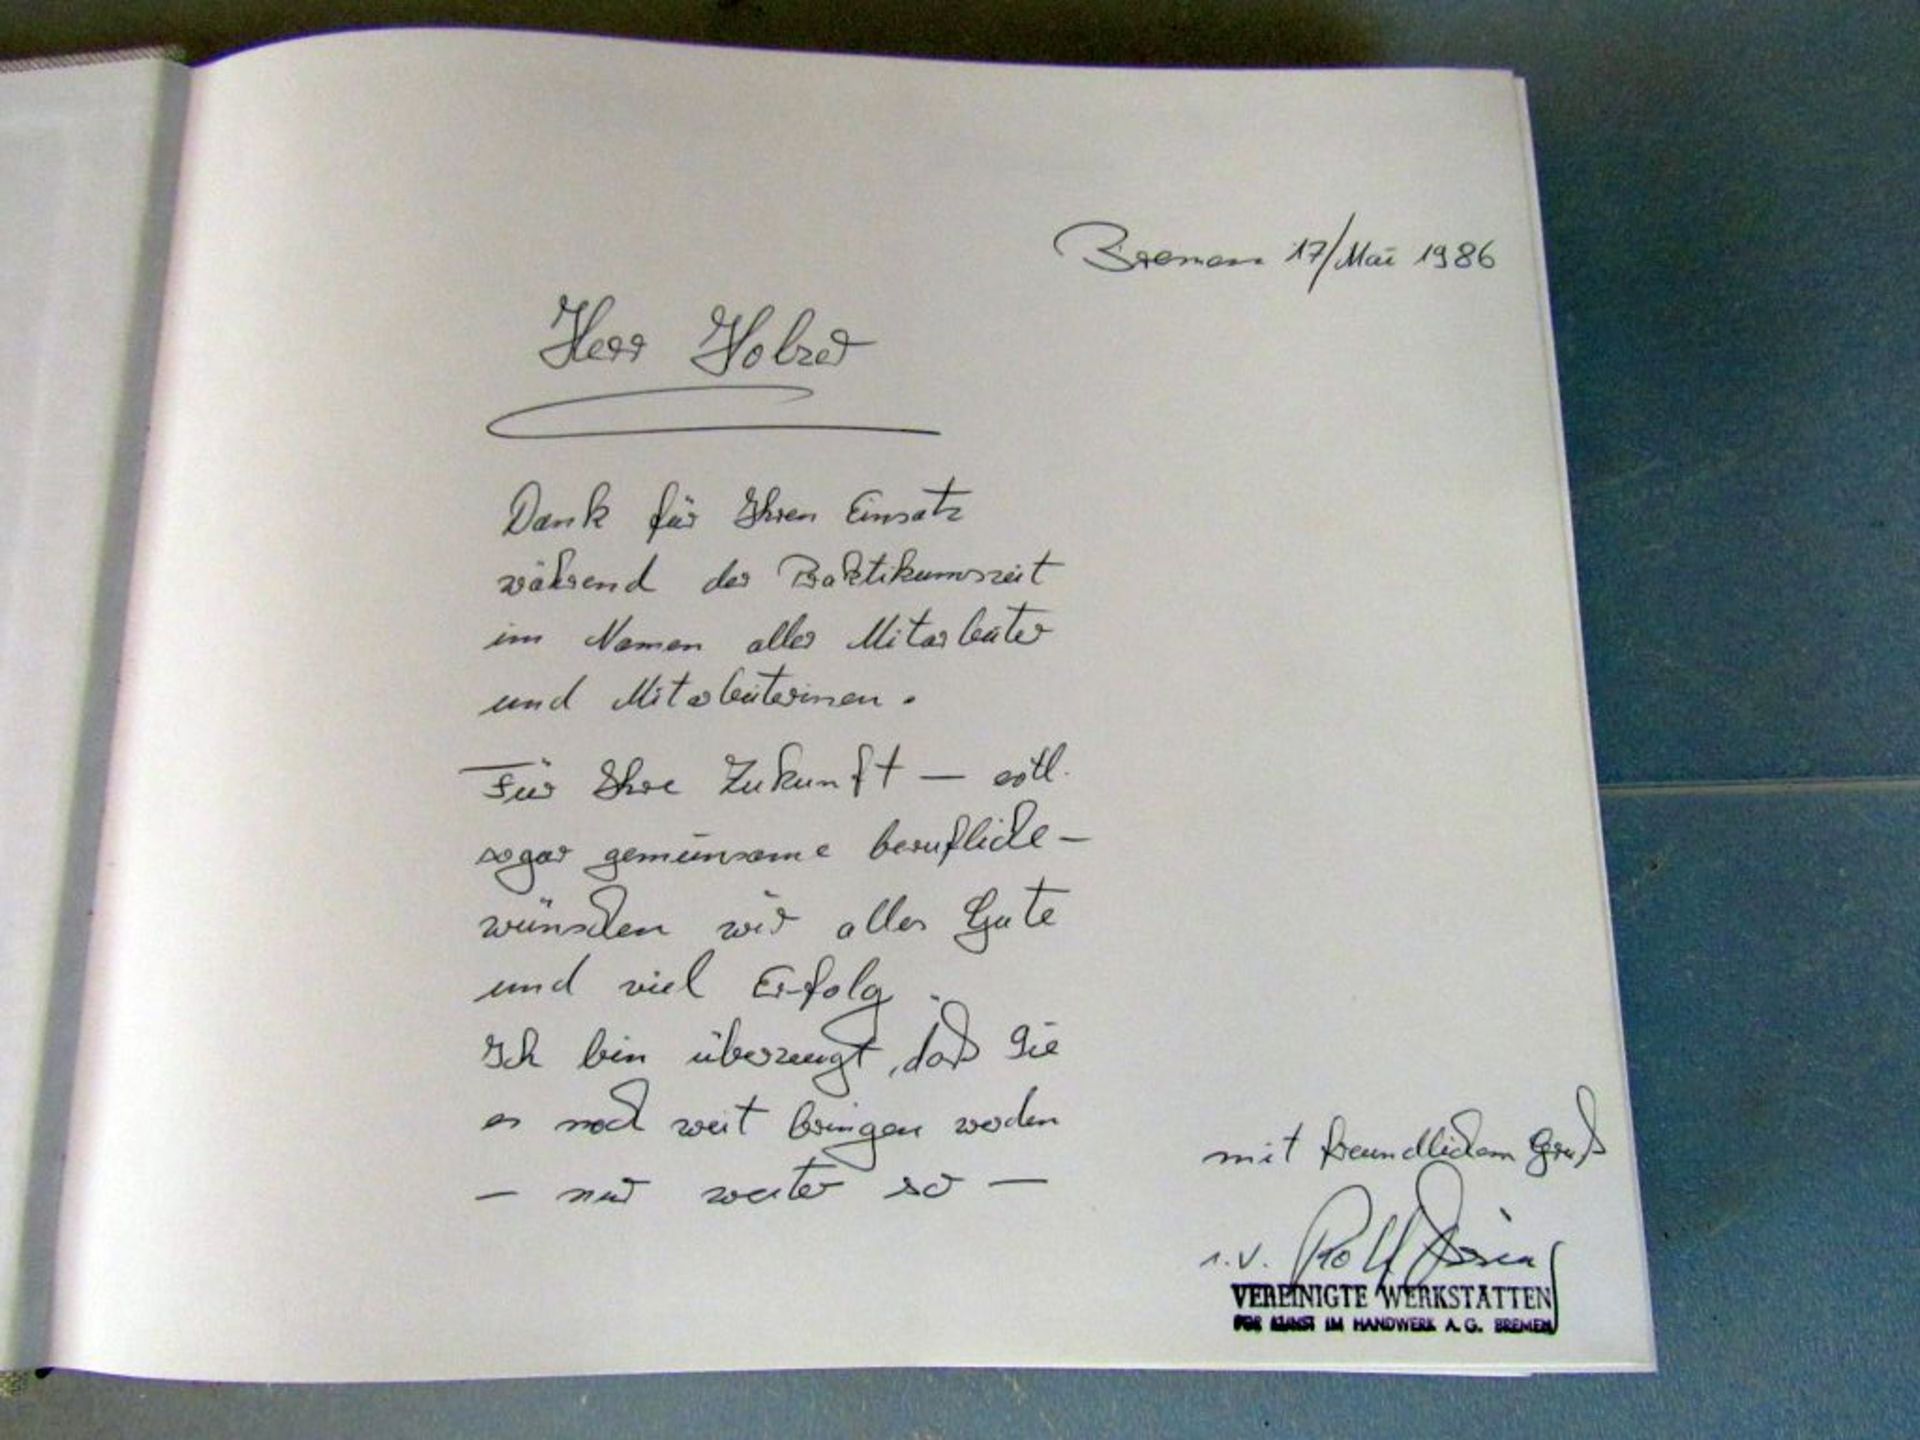 Bremen 17/Mai 1986
Herr Holzer
Dank für Ihren Einsatz
während der Praktikumszeit
im Namen aller Mitarbeiter
und Mitarbeiterinnen.
Für Ihre Zukunft — evtl.
sogar gemeinsame berufliche —
wünschen wir alles Gute
und viel Erfolg.
Ich bin überzeugt, daß Sie
es noch weit bringen werden
— nur weiter so —
mit freundlichem Gruß
i.V. Rolf
VEREINIGTE WERKSTÄTTEN
FÜR KUNST IM HANDWERK A.G. BREMEN